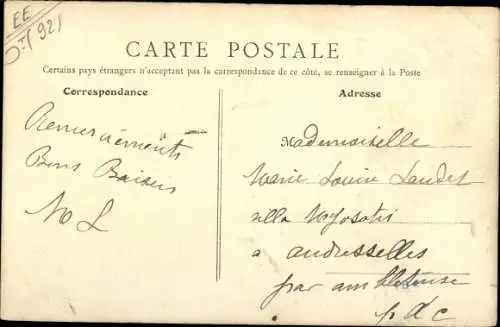 EE
CARTE POSTALE
Certains pays étrangers n'acceptant pas la correspondance de ce côté, se renseigner à la Poste
Correspondance
Adresse
Remerciements
Bons Baisers
M L
Mademoiselle
Marie Louise Landet
villa Myosotis
à Audresselles
par ambleteuse
p d c